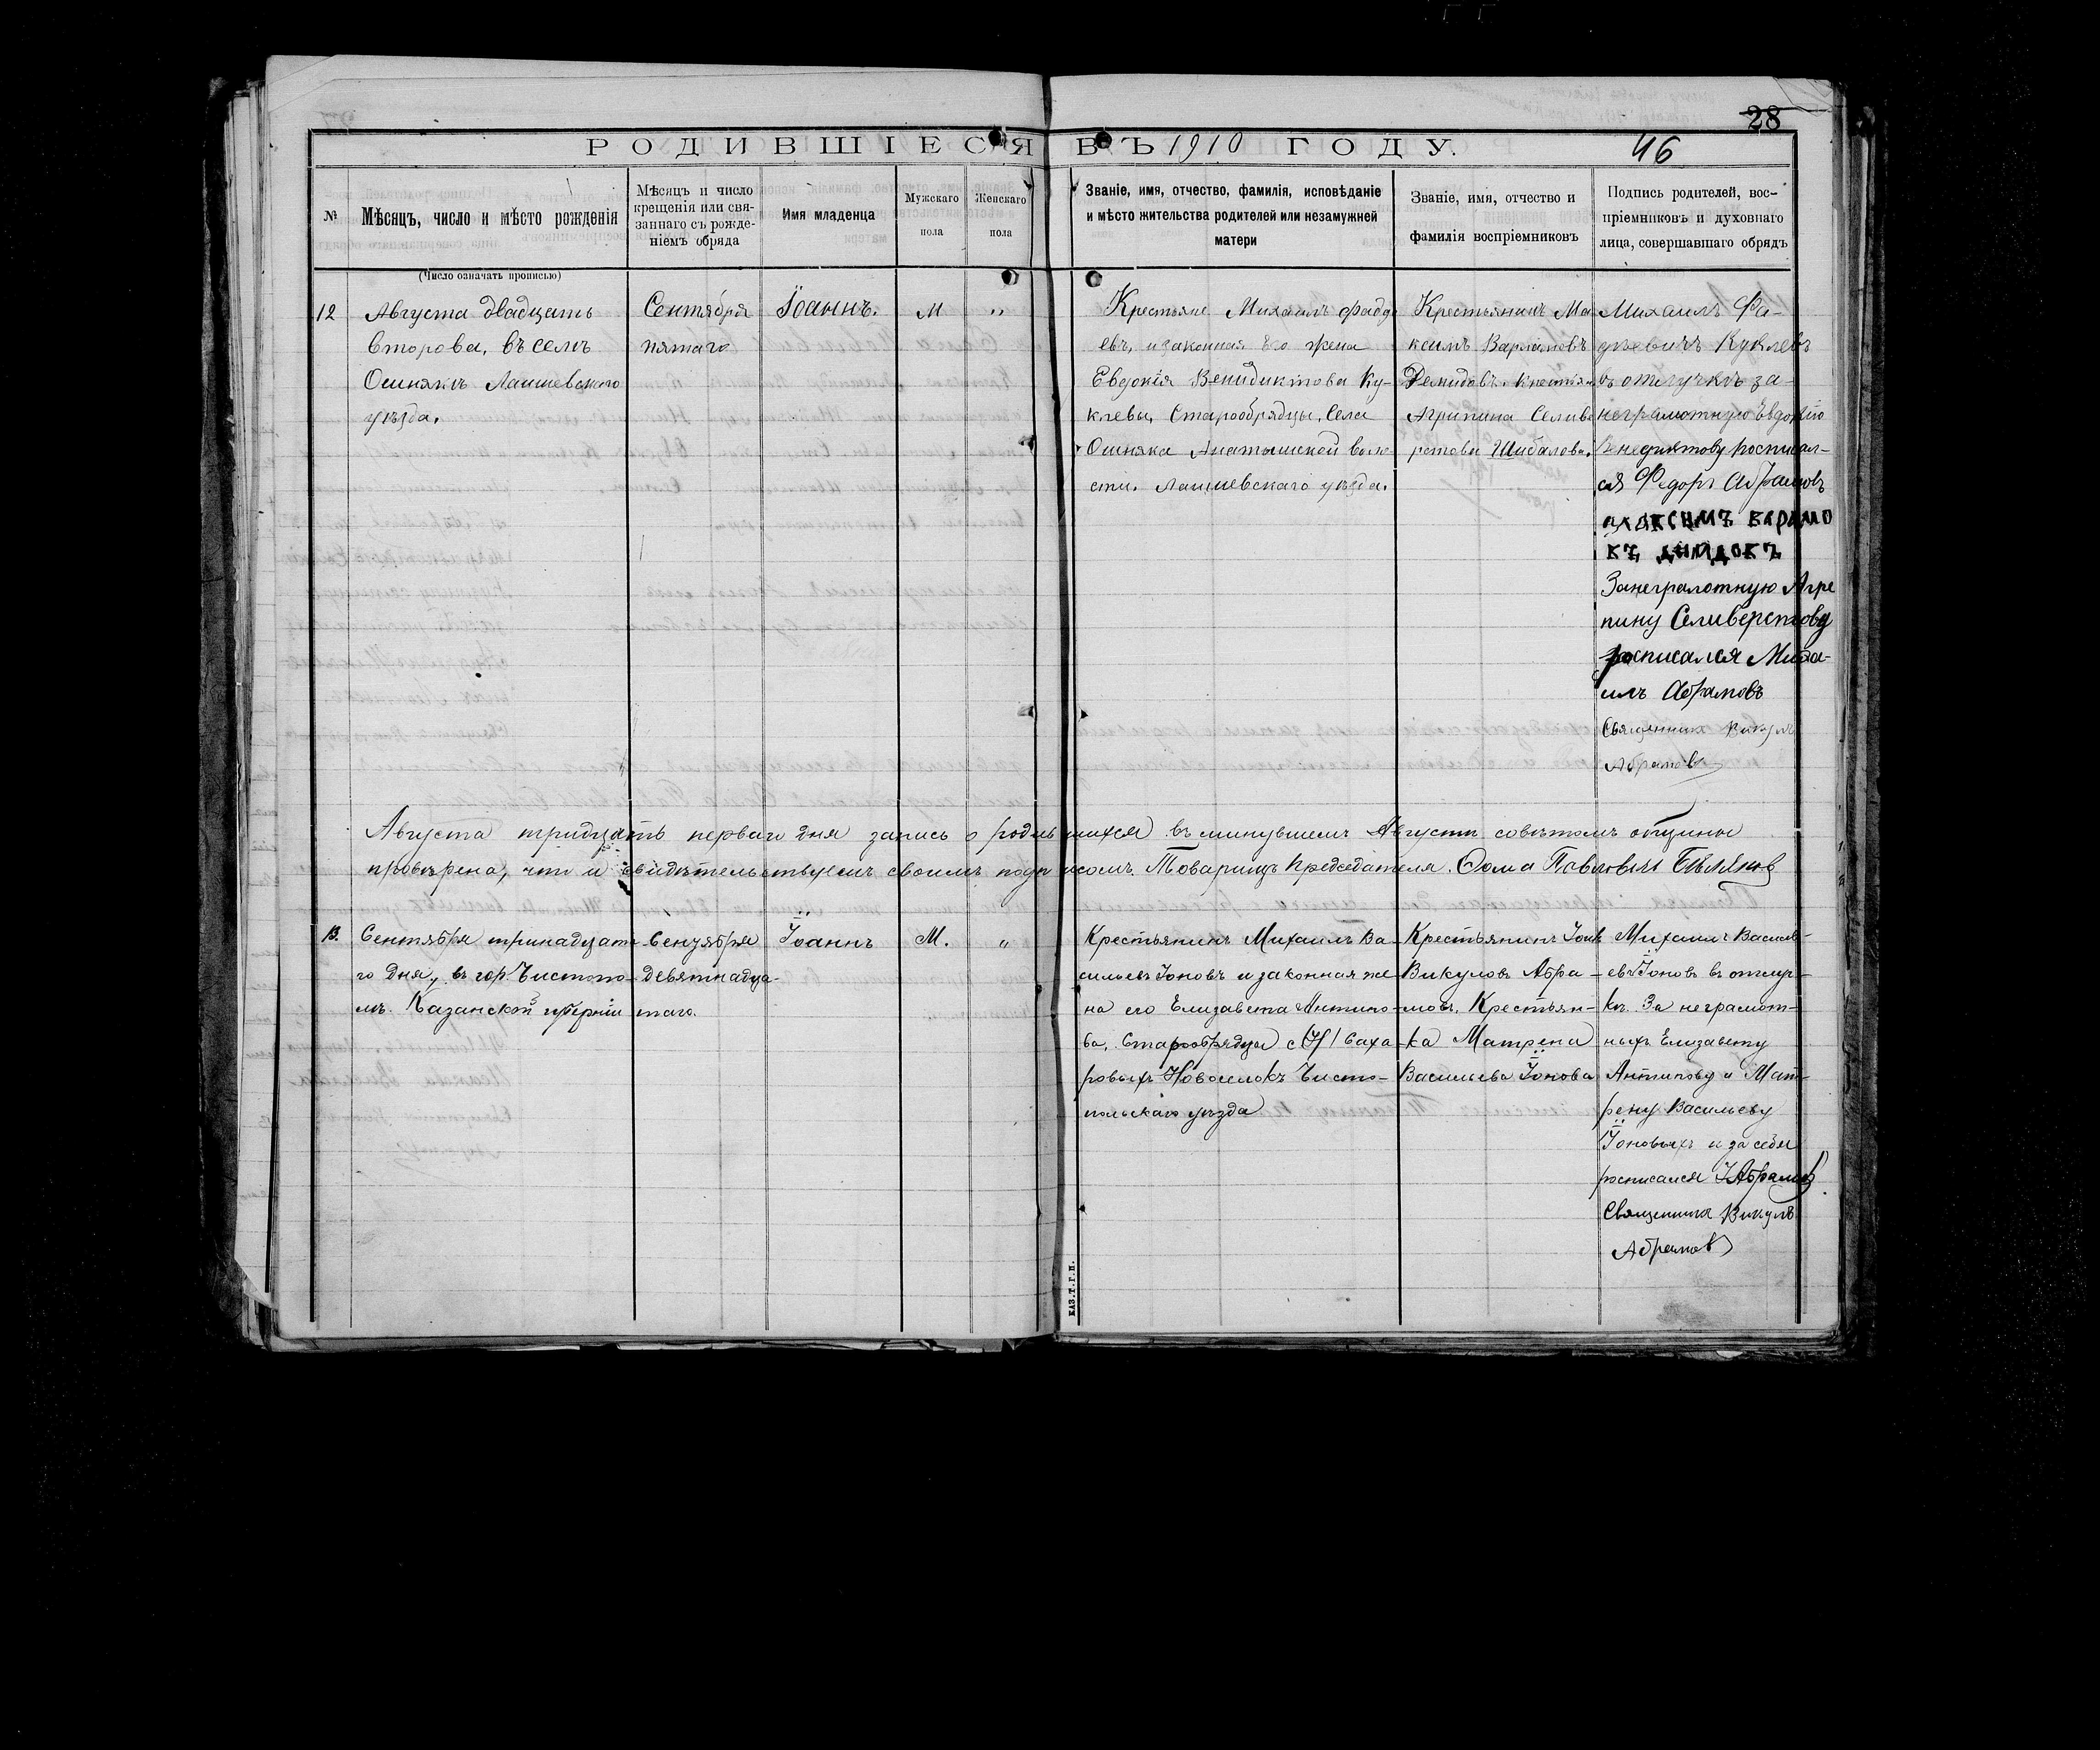 28
РОДИВШІЕСЯ ВЪ 1910 ГОДУ.
46
№
Мѣсяцъ, число и мѣсто рожденія
(Число означать прописью)
Мѣсяцъ и число
крещенія или свя-
заннаго съ рожде-
ніемъ обряда
Имя младенца
Мужскаго
пола
Женскаго
пола
Званіе, имя, отчество, фамилія, исповѣданіе
и мѣсто жительства родителей или незамужней
матери
Званіе, имя, отчество и
фамилія воспріемниковъ
Подпись родителей, вос-
пріемниковъ и духовнаго
лица, совершавшаго обрядъ
12
Августа двадцать
второва, въ селѣ
Ошнякъ Лаишевскаго
уѣзда.
Сентября
пятаго
Іоаннъ.
М
"
Крестьяне Михаилъ Фадде
евъ, и законная его жена
Евдокія Венидиктова Ку-
клевы, Старообрядцы, Села
Ошняка Анатышской воло-
сти. Лаишевскаго уѣзда.
Крестьянинъ Ма
ксимъ Варламовъ
Демидовъ. Крестьян
Агрипина Селиве
рстова Шибалова.
Михаилъ Фа-
дѣевичъ Куклевъ
въ отлучкѣ за-
неграмотную Евдокію
Венедиктову росписал-
ся Федоръ Абрамовъ
Занеграмотную Агре
пину Селиверстову
росписался Миха-
илъ Абрамовъ
Священникъ Викулъ
Абрамовъ
Августа тридцать перваго дня запись о родившихся въ минувшемъ Августѣ совѣтомъ общины
провѣрена, что и свидѣтельствуемъ своимъ подписомъ. Товарищъ Председателя. Фома Павловичъ Бѣляков
13.
Сентября тринадцата-
го дня, въ гор. Чистопо-
лѣ Казанской губерніи
Сентября
девятнадца-
таго.
Іоаннъ
М.
"
Крестьянинъ Михаилъ Ва-
сильевъ Іоновъ и законная же-
на его Елизавета Антипо-
ва, Старообрядцы с. Саха
ровыхъ Новоселокъ Чисто-
польскаго уѣзда
Крестьянинъ Іоив
Викуловъ Абра-
мовъ. Крестьян-
ка Матрена
Васильева Іонова
Михаилъ Василь-
евъ Іоновъ въ отлуч-
кѣ. За неграмот-
ныхъ Елизавету
Антипову и Мат-
рену Васильеву
Іоновыхъ и за себя
росписался І Абрамов
Священникъ Викулъ
Абрамов
КАЗ.Т.Г.П.